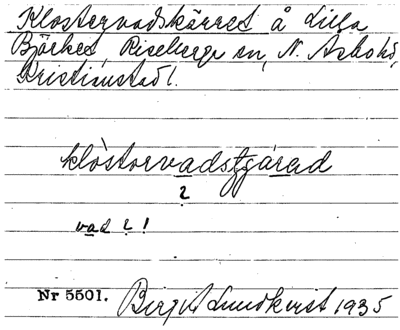 Klostervadskärret å Lilla
Björket, Riseberga sn, N. Åsbo hd,
Kristianstad l.
klòstorvadstjárad
?
vad ? !
Nr 5501. Birgit Lundkvist 1935